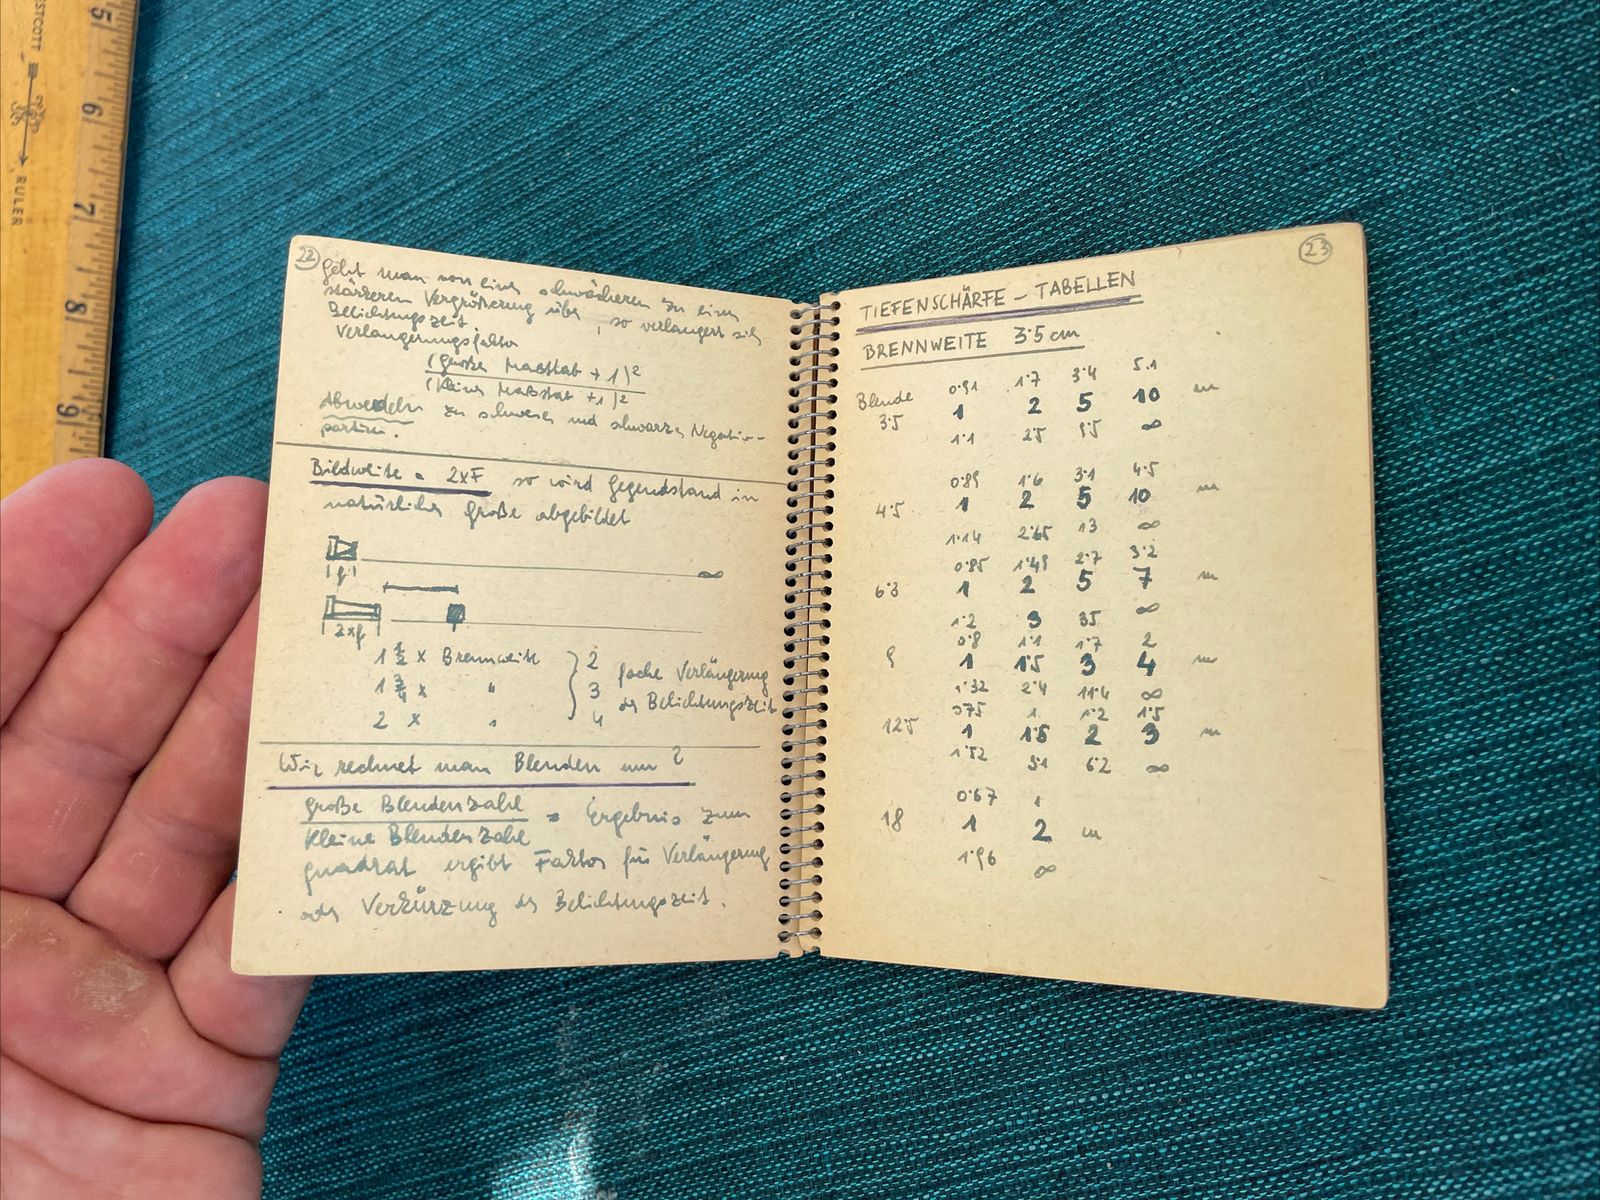 WESTCOTT
RULER
5
6
7
8
9
22
Geht man von einer schwächeren zu einer
stärkeren Vergrößerung über, so verlängert sich
Belichtungszeit
Verlängerungsfaktor
(Großer Maßstab + 1)²
(Kleiner Maßstab + 1)²
Abwedeln zu schwerer und schwarzer Negativ-
partien.
Bildweite = 2xF so wird Gegendstand in
natürlicher Größe abgebildet
1f1
∞
2xf
1 1/2 x Brennweite 2
1 3/4 x " 3 fache Verlängerung
2 x " 4 der Belichtungszeit
Wie rechnet man Blenden um?
große Blendenzahl = Ergebnis zum
kleine Blendenzahl
quadrat ergibt Faktor für Verlängerung
oder Verkürzung der Belichtungszeit.
23
TIEFENSCHÄRFE - TABELLEN
BRENNWEITE 3·5 cm
0·91 1·7 3·4 5·1
Blende 1 2 5 10 m
3·5
1·1 2·5 9·5 ∞
0·89 1·6 3·1 4·5
4·5 1 2 5 10 m
1·14 2·65 13 ∞
0·85 1·49 2·7 3·2
6·3 1 2 5 7 m
1·2 3 35 ∞
0·8 1·1 1·7 2
9 1 1·5 3 4 m
1·32 2·4 11·4 ∞
0·75 1 1·2 1·5
12·5 1 1·5 2 3 m
1·52 3·1 6·2 ∞
0·67 1
18 1 2 m
1·96 ∞